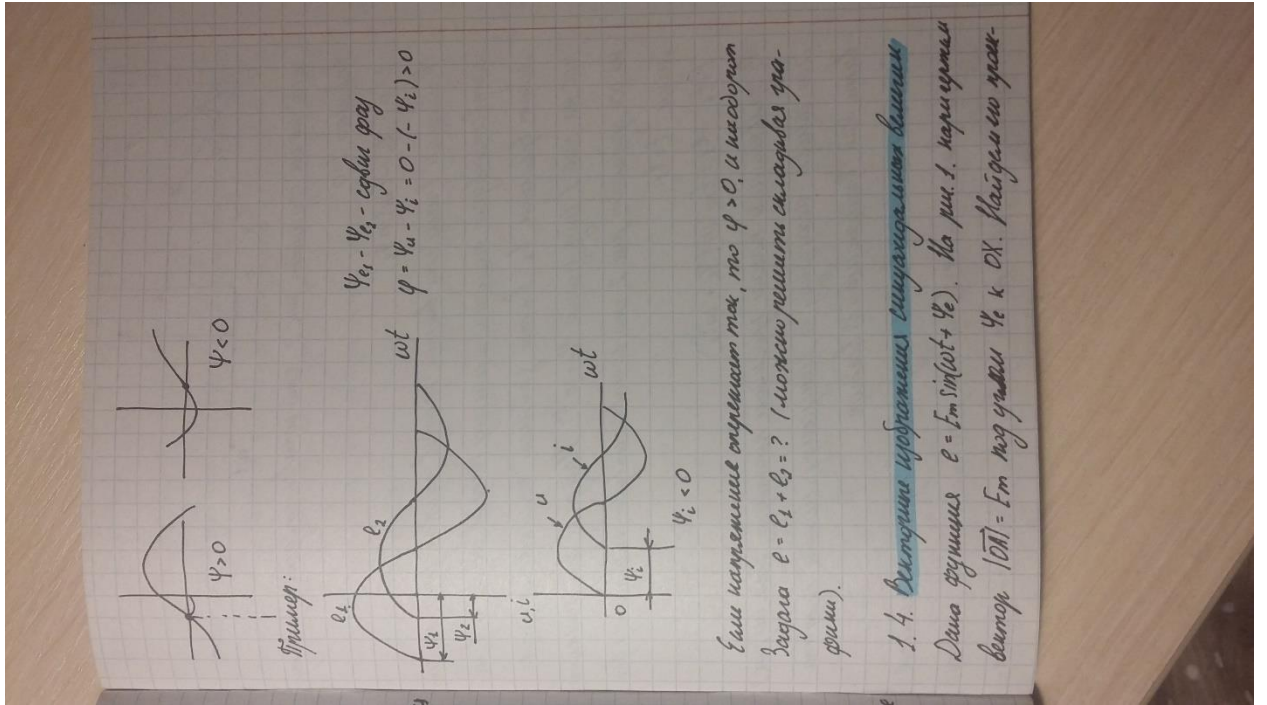 Ψ>0
Ψ<0
Пример:
e₁
e₂
ωt
Ψ₁
Ψ₂
Ψe₁ - Ψe₂ - сдвиг фаз
φ = Ψu - Ψi = 0 - (-Ψi) > 0
u, i
u
i
ωt
0
Ψi
Ψi < 0
Если напряжение опережает ток, то φ > 0, и наоборот
Задача e = e₁ + e₂ = ? (можно решить складывая гра-
фики).
1.4. Векторные изображения синусоидальных величин
Дана функция e = Em sin(ωt + Ψe). На рис. 1. начертим
вектор |OA| = Em под углом Ψe к OX. Найдем его проек-